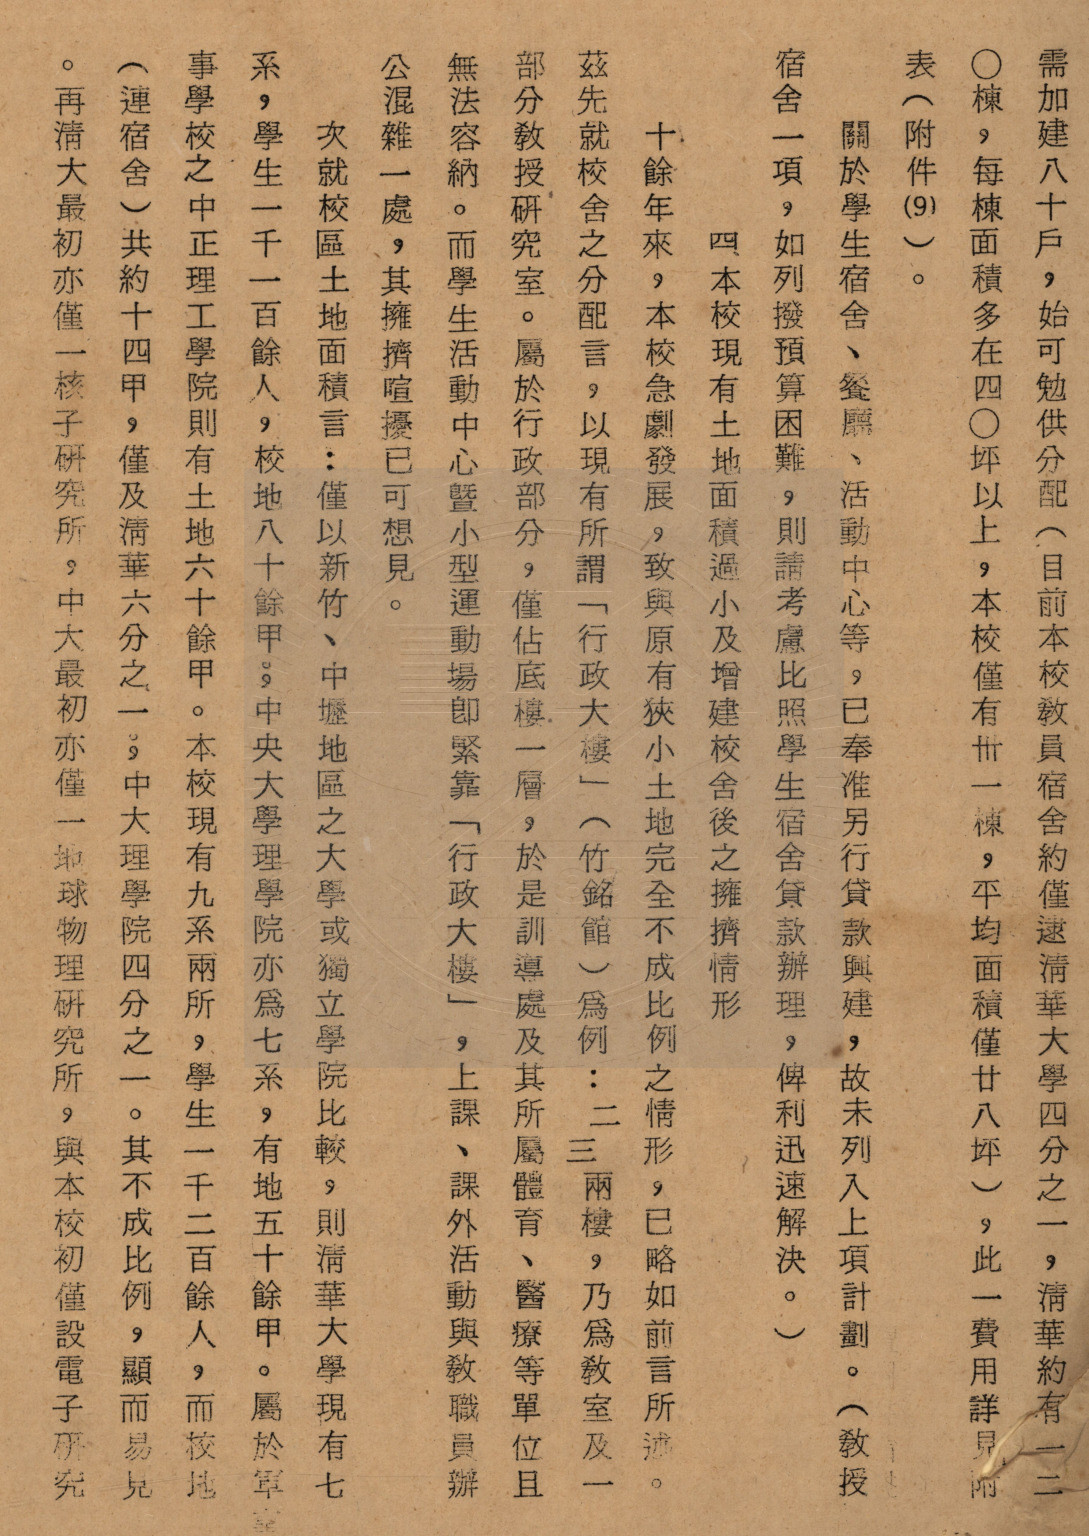 需加建八十戶，始可勉供分配（目前本校教員宿舍約僅逮淸華大學四分之一，淸華約有一二
〇棟，每棟面積多在四〇坪以上，本校僅有卅一棟，平均面積僅廿八坪），此一費用詳見附
表（附件(9)）。
關於學生宿舍、餐廳、活動中心等，已奉准另行貸款興建，故未列入上項計劃。（敎授
宿舍一項，如列撥預算困難，則請考慮比照學生宿舍貸款辦理，俾利迅速解決。）
四、本校現有土地面積過小及增建校舍後之擁擠情形
十餘年來，本校急劇發展，致與原有狹小土地完全不成比例之情形，已略如前言所述。
茲先就校舍之分配言，以現有所謂「行政大樓」（竹銘館）爲例：二三兩樓，乃爲敎室及一
部分敎授硏究室。屬於行政部分，僅佔底樓一層，於是訓導處及其所屬體育、醫療等單位且
無法容納。而學生活動中心暨小型運動場卽緊靠「行政大樓」，上課、課外活動與敎職員辦
公混雜一處，其擁擠喧擾已可想見。
次就校區土地面積言：僅以新竹、中壢地區之大學或獨立學院比較，則淸華大學現有七
系，學生一千一百餘人，校地八十餘甲。；中央大學理學院亦爲七系，有地五十餘甲。屬於軍
事學校之中正理工學院則有土地六十餘甲。本校現有九系兩所，學生一千二百餘人，而校地
（連宿舍）共約十四甲，僅及淸華六分之一。；中大理學院四分之一。其不成比例，顯而易見
。再淸大最初亦僅一核子硏究所，中大最初亦僅一地球物理硏究所，與本校初僅設電子硏究